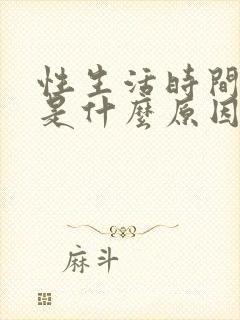 性生活時間
是什麼原因
麻斗